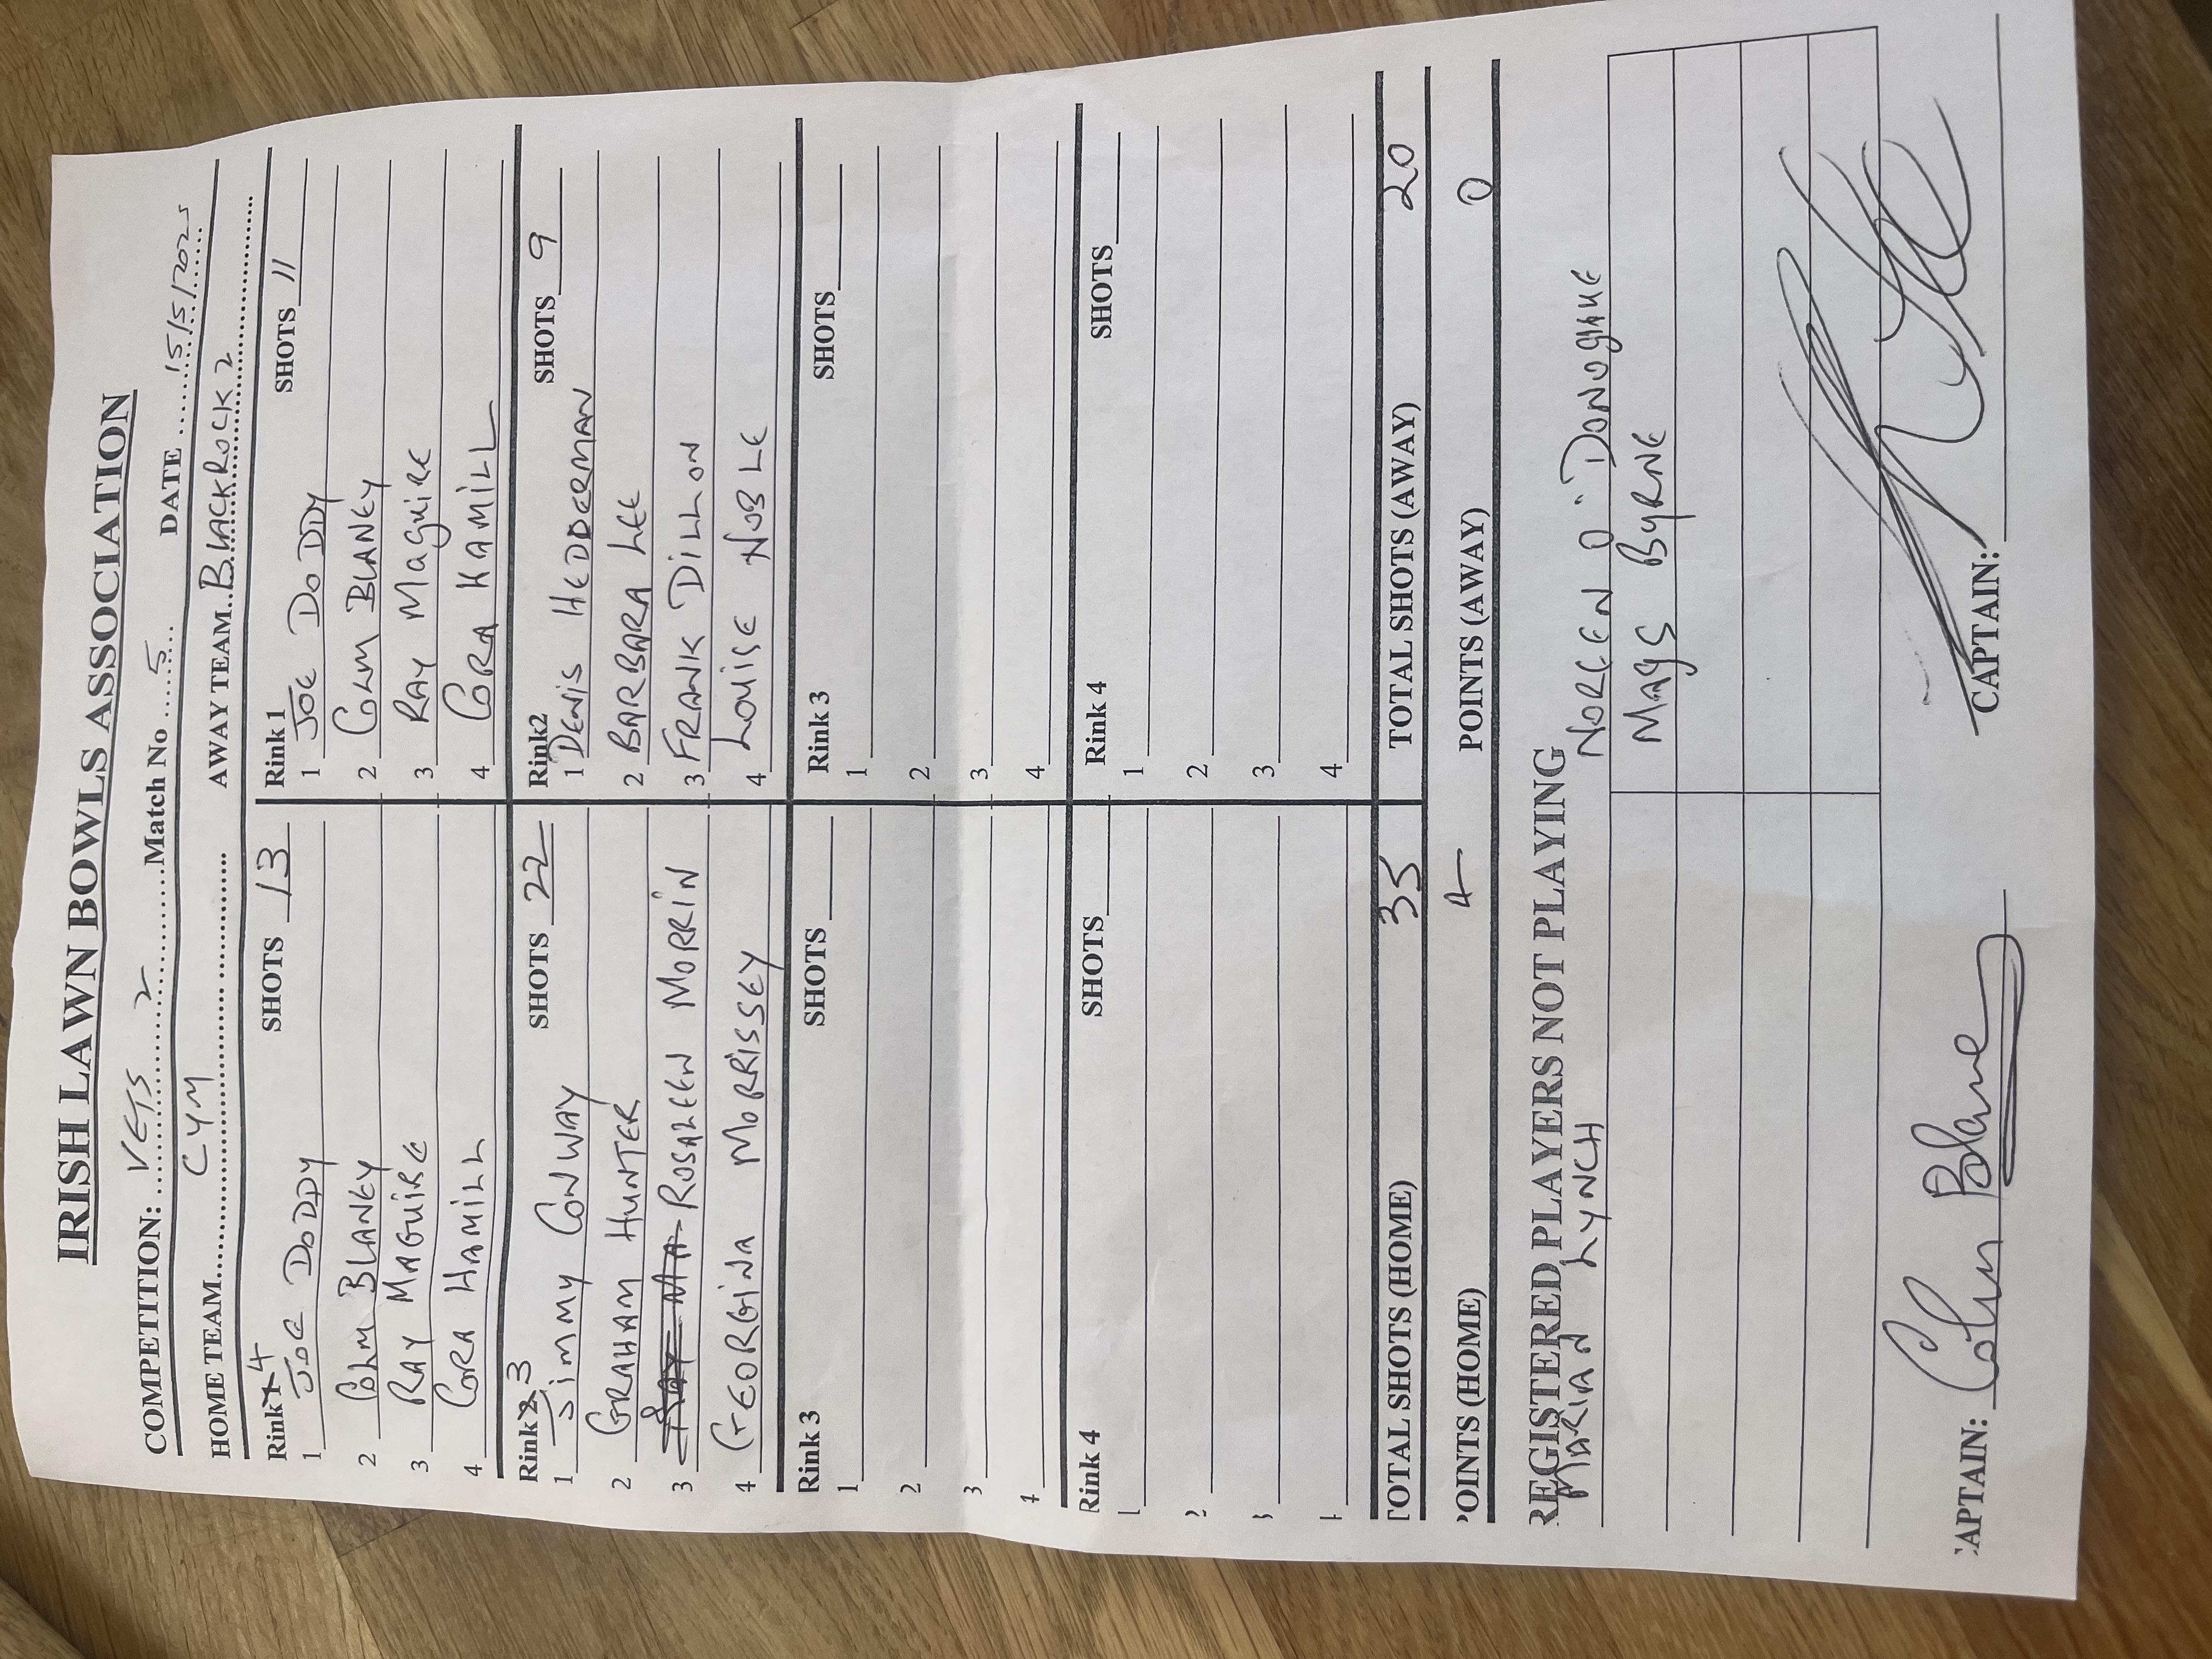 IRISH LAWN BOWLS ASSOCIATION
COMPETITION: VETS 2 Match No 5 DATE 15/5/2025
HOME TEAM CYM AWAY TEAM BLACKROCK 2
Rink 4 SHOTS 13 Rink 1 SHOTS 11
1 JOE DODDY 1 JOE DODDY
2 COLM BLANEY 2 COLM BLANEY
3 RAY MAGUIRE 3 RAY MAGUIRE
4 CORA HAMILL 4 CORA HAMILL
Rink 3 SHOTS 22 Rink2 SHOTS 9
1 JIMMY CONWAY 1 DENIS HEDDERMAN
2 GRAHAM HUNTER 2 BARBARA LEE
3 ROSALEEN MORRIN 3 FRANK DILLON
4 GEORGINA MORRISSEY 4 LOUISE NOBLE
Rink 3 SHOTS Rink 3 SHOTS
1 1
2 2
3 3
4 4
Rink 4 SHOTS Rink 4 SHOTS
1 1
2 2
3 3
4 4
TOTAL SHOTS (HOME) 35 TOTAL SHOTS (AWAY) 20
POINTS (HOME) 4 POINTS (AWAY) 0
REGISTERED PLAYERS NOT PLAYING
MARIAN LYNCH NOREEN O'DONOGHUE
MAGS BYRNE
CAPTAIN: Colm Blaney CAPTAIN: